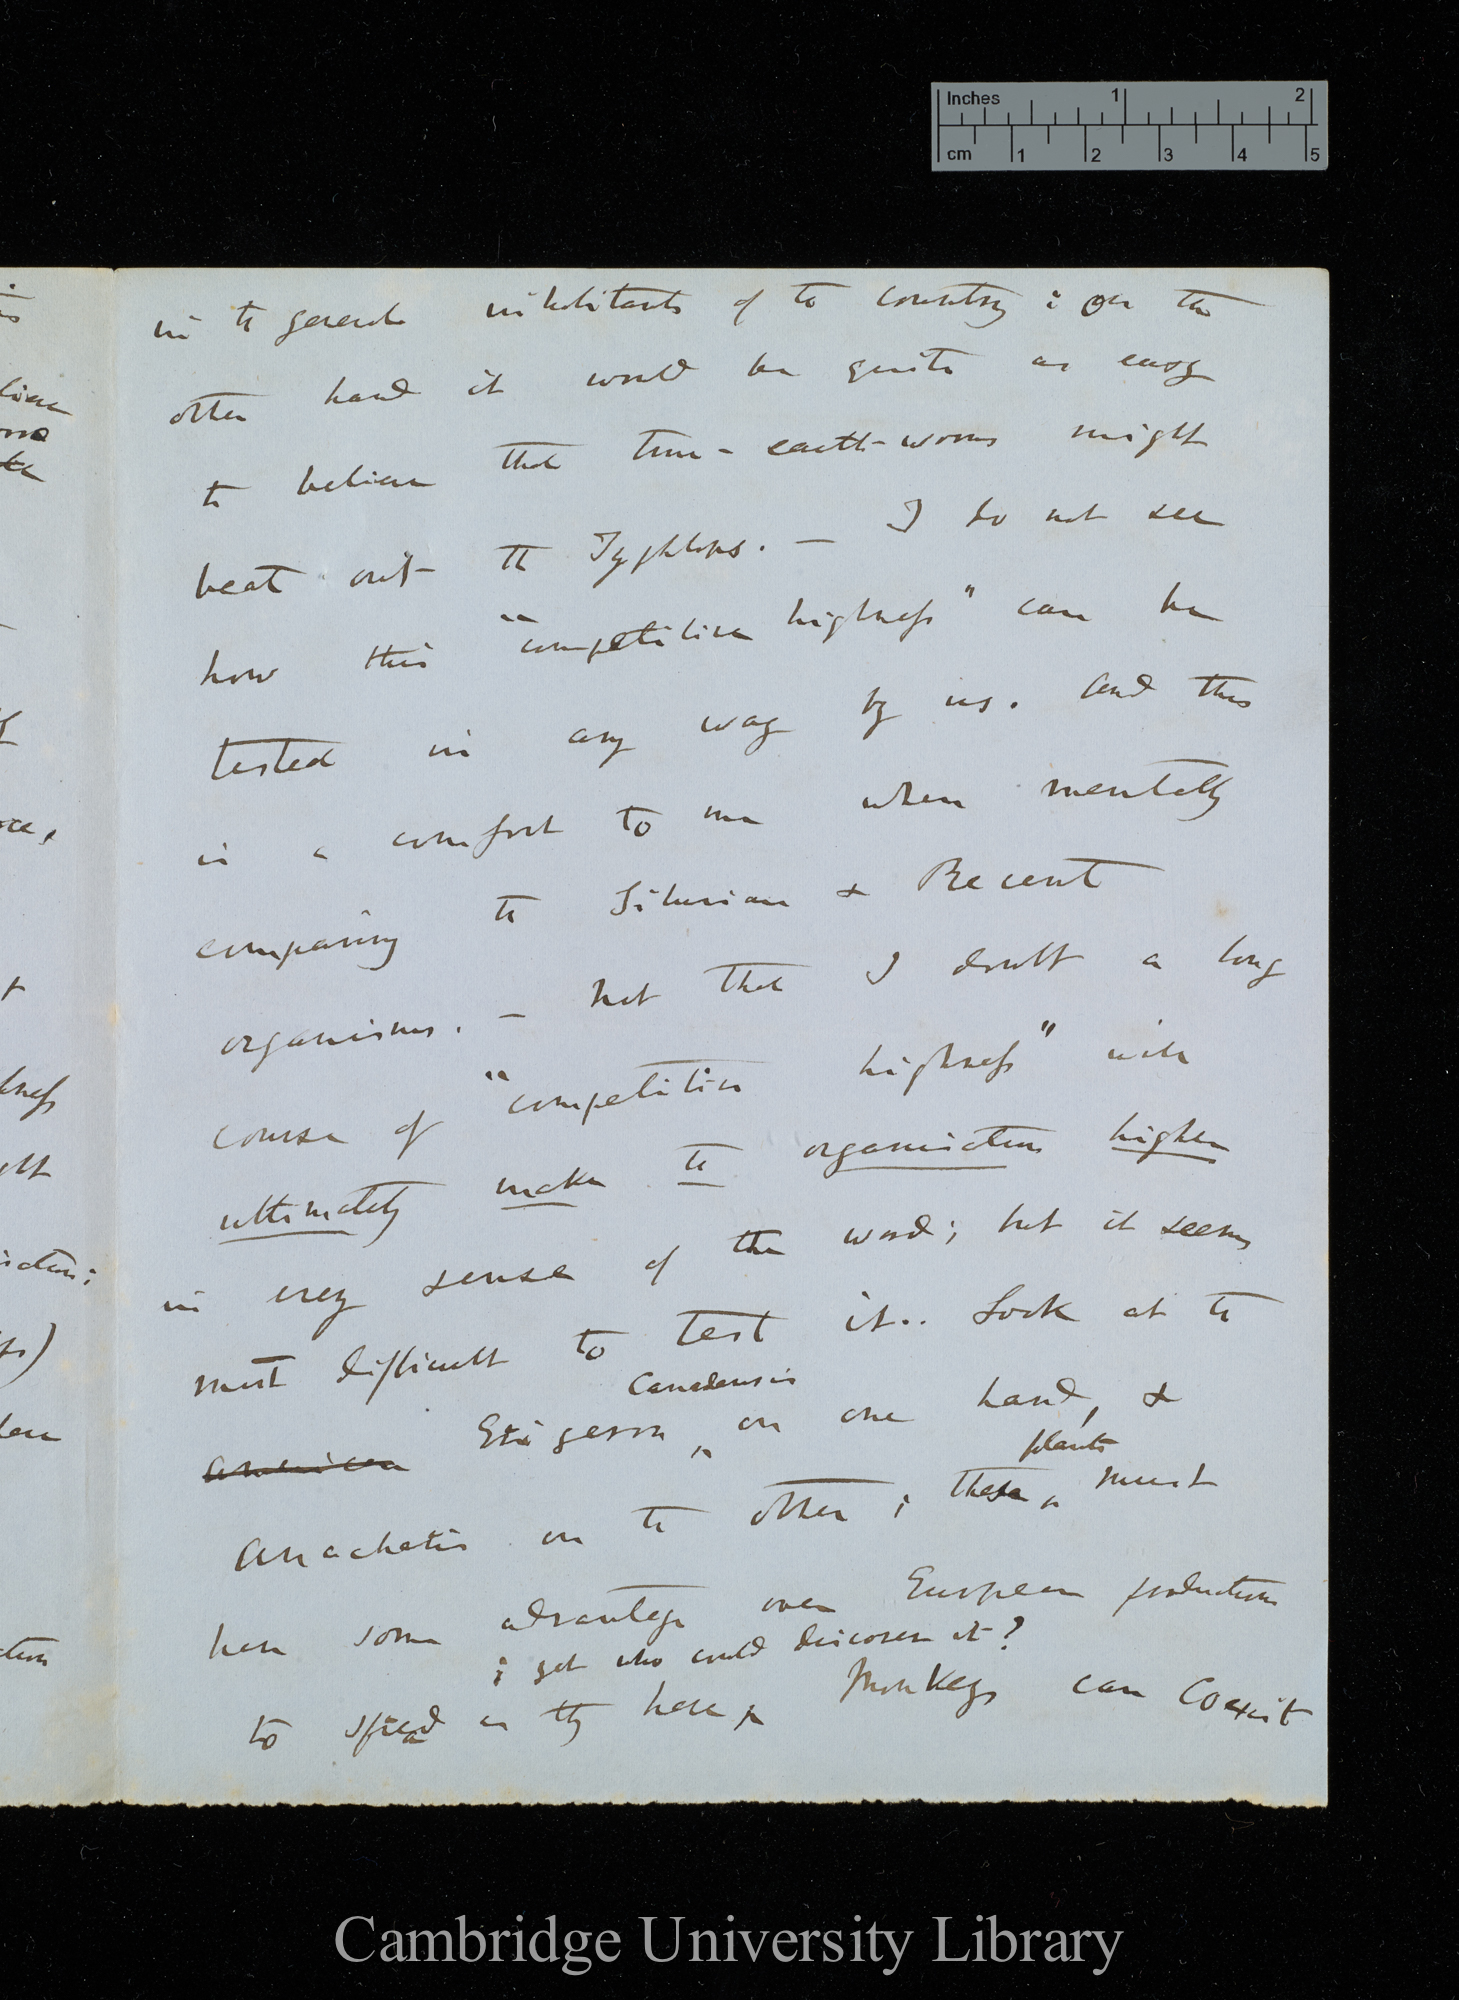 Inches 1 2
cm 1 2 3 4 5
in the general inhabitants of the country; on the
other hand it would be quite as easy
to believe that true-earth-worms might
beat out the Typhlops. — I do not see
how this "competitive highness" can be
tested in any way by us. And this
is a comfort to me when mentally
comparing the Silurian & Recent
organisms. — Not that I doubt a long
course of "competitive highness" will
ultimately make the organisation higher
in every sense of the word; but it seems
most difficult to test it.. Look at the
Canadensis
American Erigeron on one hand, &
plants
Anacharis on the other; these must
have some advantage over European productions
; yet who could discover it?
to spread as they have Monkeys can coexist
Cambridge University Library